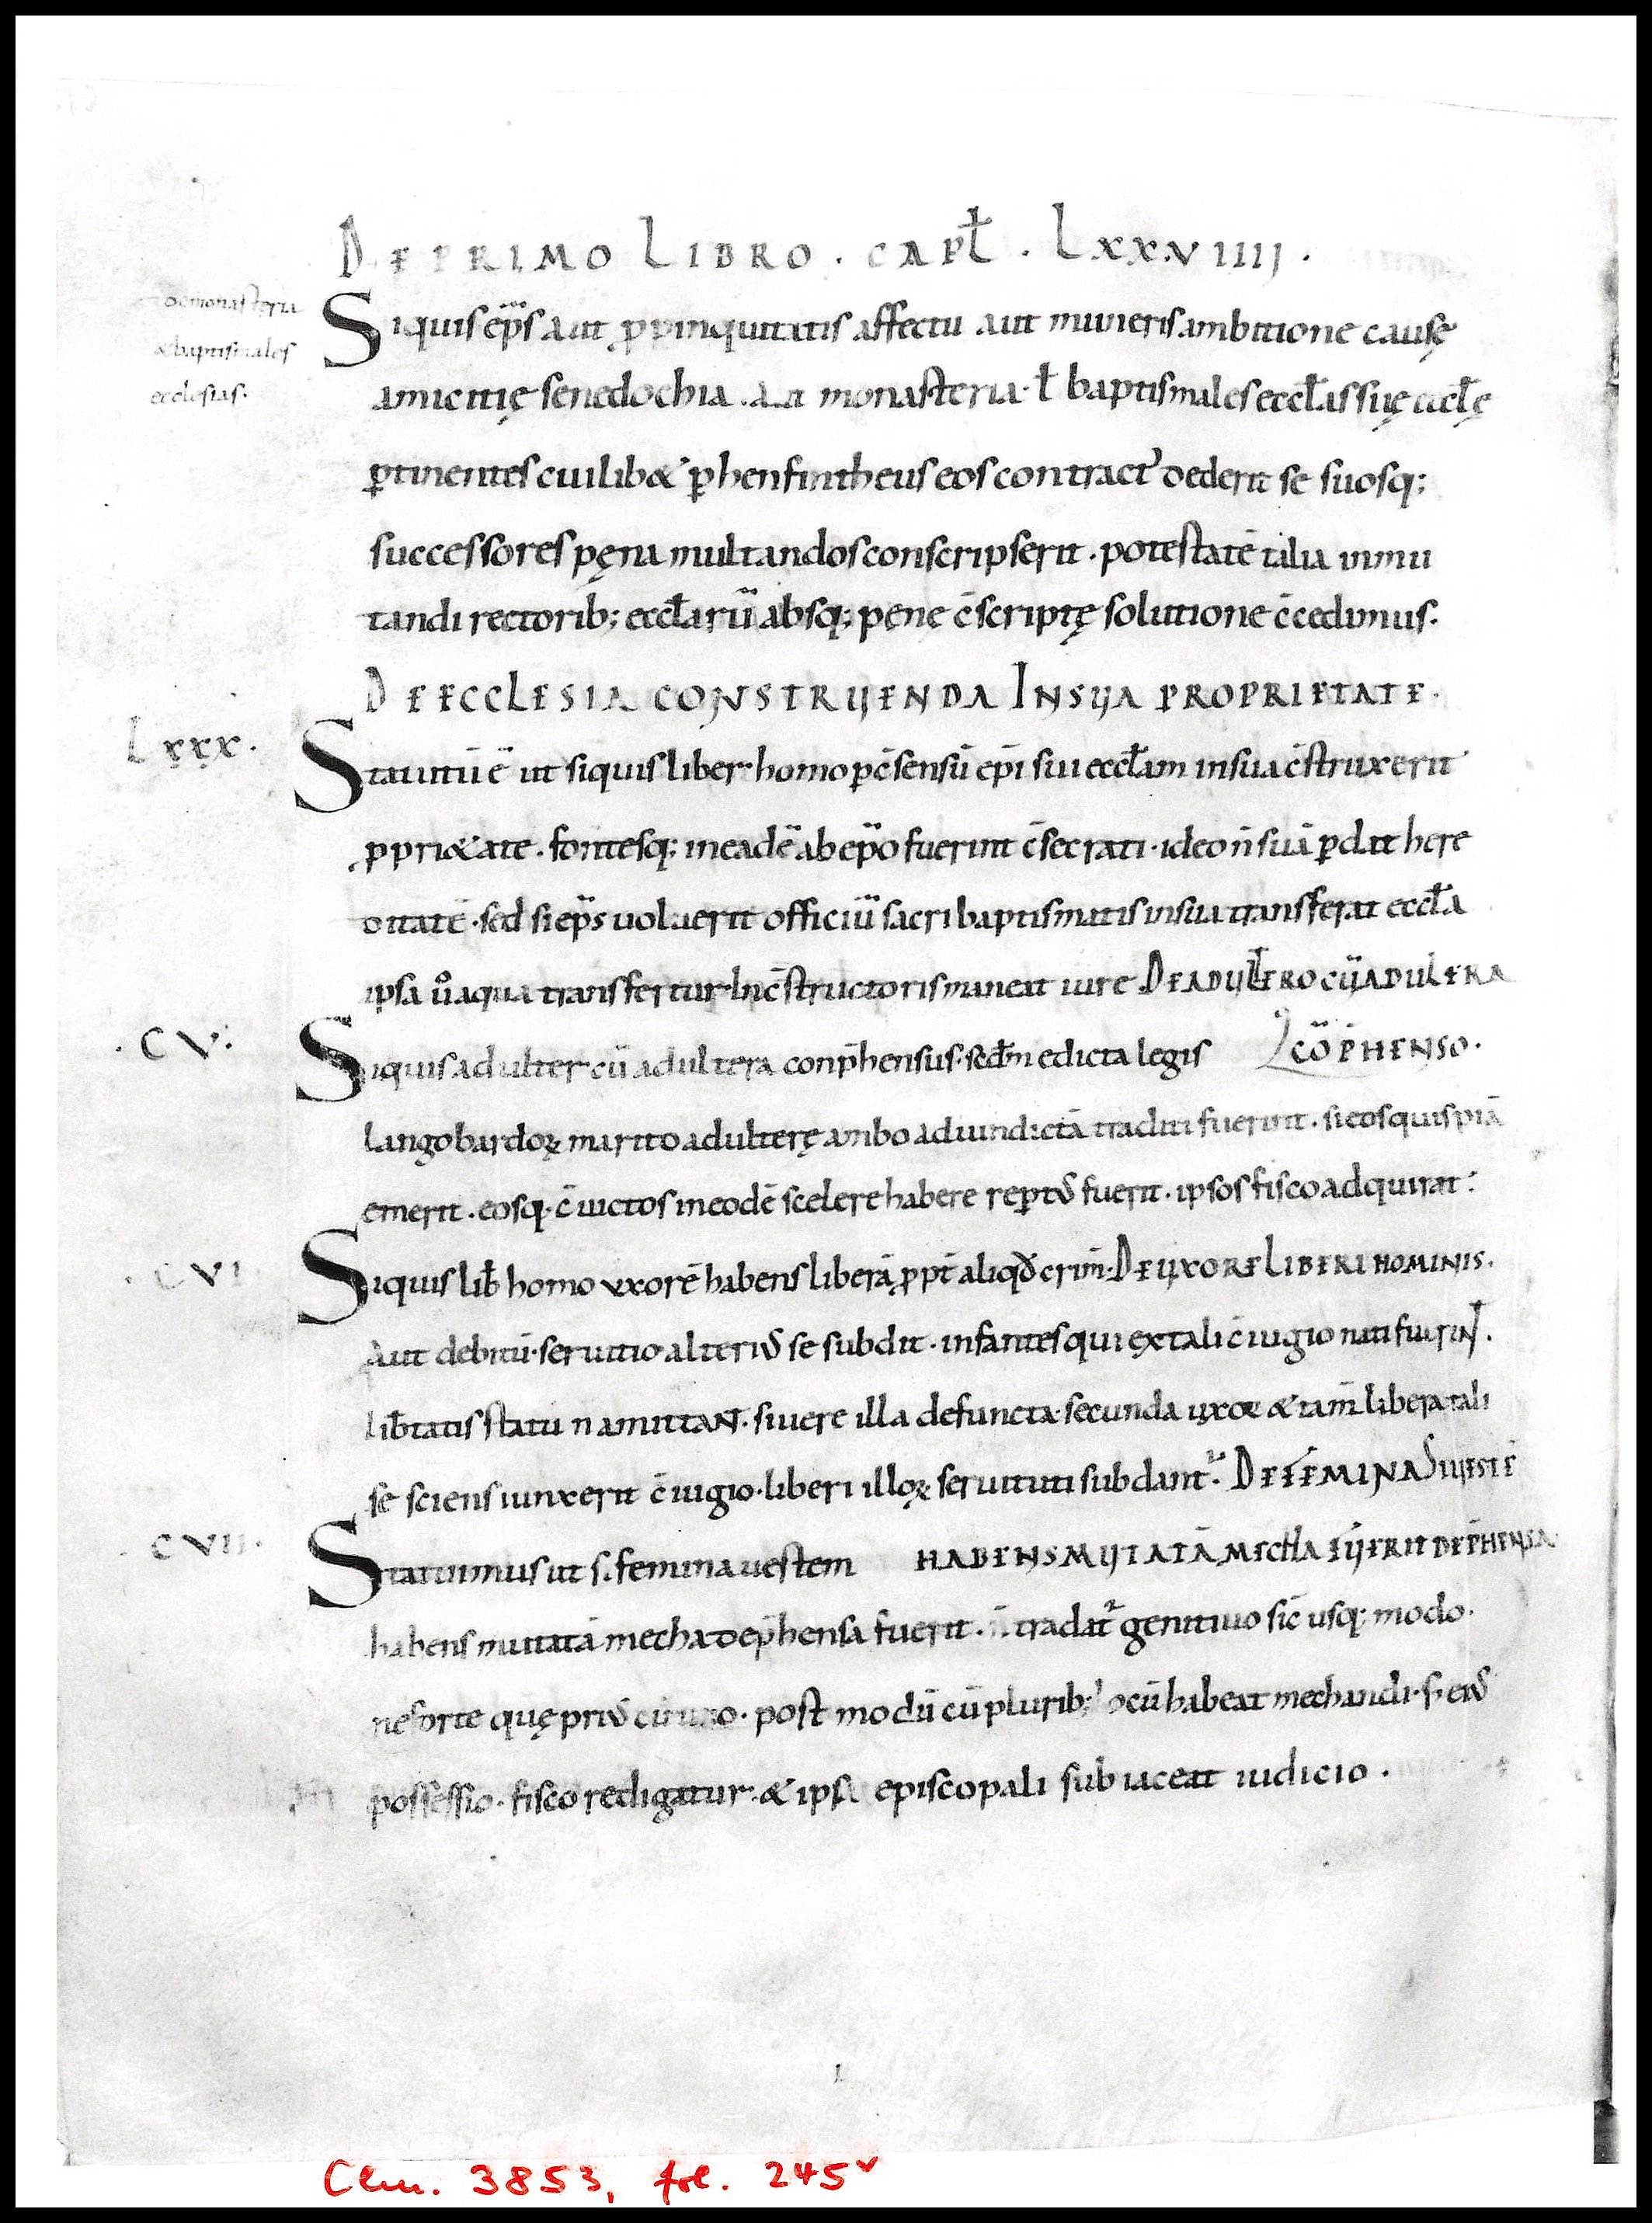 DE PRIMO LIBRO . CAPƚ . LXXVIIII .
de monasteria
& baptismales
ecclesias.
Siquis ep̄s aut ꝓpinquitatis affectu aut muneris ambitione causę
amicitię senedochia . aut monasteria ƚ baptismales eccƚas suę eccƚę
ꝑtinentes cuilib& ꝑ henfintheus eos contract᾿ dederit se suosq;
successores pęna multandos conscripserit . potestatē talia inmu
tandi rectorib; eccƚarū absq; pene c̄scriptę solutione c̄cedimus.
DE ECCLESIA CONSTRUENDA IN SUA PROPRIETATE.
LXXX.
Statutū ē ut siquis liber homo ꝑ c̄sensū ep̄i sui eccƚam in sua c̄struxerit
ꝓpri&ate . fontesq; in eadē ab ep̄o fuerint c̄secrati . ideo n̄ suā ꝑdat here
ditatē . sed si ep̄s uoluerit officiū sacri baptismatis in sua transferat eccƚa
ipsa ůaqua transfertur in c̄structoris maneat iure DE ADULTERO CŪ ADULTERA
CV:
Siquis adulter cū adultera conp̄hensus . scdm̄ edicta legis CŌP̄HENSO.
langobardoꝝ marito adulterę ambo ad uindictā traditi fuerint . si eos quispiā
emerit . eosq; c̄iuctos in eodē scelere habere repertꝰ fuerit . ipsos fisco adquirat:
CVI
Siquis lib̄ homo uxorē habens liberā ꝓpt̄ aliqđ crim̄ . DE UXORE LIBERI HOMINIS.
Aut debitū seruitio alteriꝰ se subdit . infantes qui ex tali c̄iugio nati fuerint.
lib̄tatis statū n̄ amittant . si uere illa defuncta secunda uxor & tam̄ libera tali
se sciens iunxerit c̄iugio . liberi illoꝝ seruituti subdant᷑. DE FEMINA SI UESTĒ
CVII.
Statuimus ut si femina uestem HABENS MUTATĀ MECHA FUERIT DEP̄HENSA.
habens mutatā mecha dep̄hensa fuerit . n̄ tradat᷑ genitiuo sic̄ usq; modo.
ne forte quę priꝰ cū uno . post modū cū plurib; locū habeat mechandi . s; eiꝰ
possessio . fisco redigatur . & ipsa episcopali subiaceat iudicio .
Clm. 3853, fol. 245v